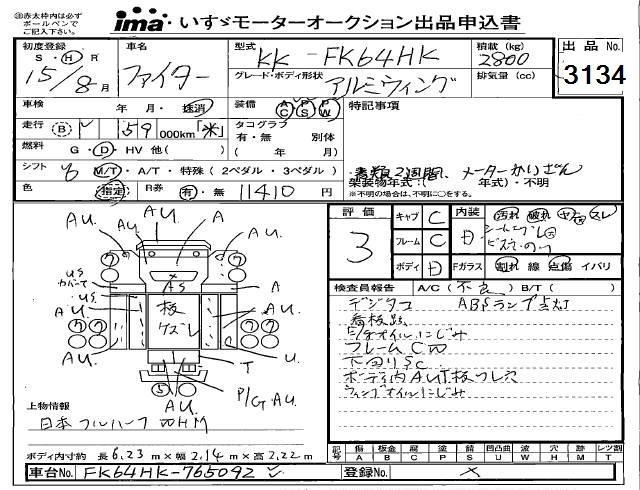 ⊛赤太枠内は必ず
ボールペンで
ご記入下さい。
ima いすゞモーターオークション出品申込書
初度登録 S・H・R 15/8月
車名 ファイター
型式 KK-FK64HK
積載(kg) 2800
出品No. 3134
グレード・ボディ形状 アルミウィング
排気量(cc)
車検 年 月・抹消
装備 AC PS PW
特記事項
走行 B 59 000km「米」
タコグラフ 有・無 別体
燃料 G・D・HV 他( )
( 年 月)
書類2週間、メーターかいざん
シフト 6 M/T・A/T・特殊(2ペダル・3ペダル)
架装物年式:( 年式)・不明
※不明の場合は、不明に○をする。
色 指定 R券 有・無 11410円
評価 3
キャブ C
フレーム C
ボディ D
内装 D 汚れ 破れ コゲ スレ
Fガラス 割れ 線 点傷 イバリ
検査員報告 A/C(不良) B/T( )
デジタコ ABSランプ点灯
看板跡
オイルにじみ
フレームC凹
下回りSC
ボディ内AU板フレ穴
ウィングオイルにじみ
AU. AU A
ウ ウ
US カバーて AS A
US 板 ケズレ
AU. AU.
ウ ウ ウ ウ
AU. U.
T
S AU. P/G AU.
上物情報
日本フルハーフ 凹HM
ボディ内寸約 長6.23m×幅2.14m×高2.22m
記号 傷 A 板金 B 腐 C 塗 P 錆 S 凹凸曲 U 波 W 穴 H 跡 M レツ割 T
車台No. FK64HK-765092
登録No. ×